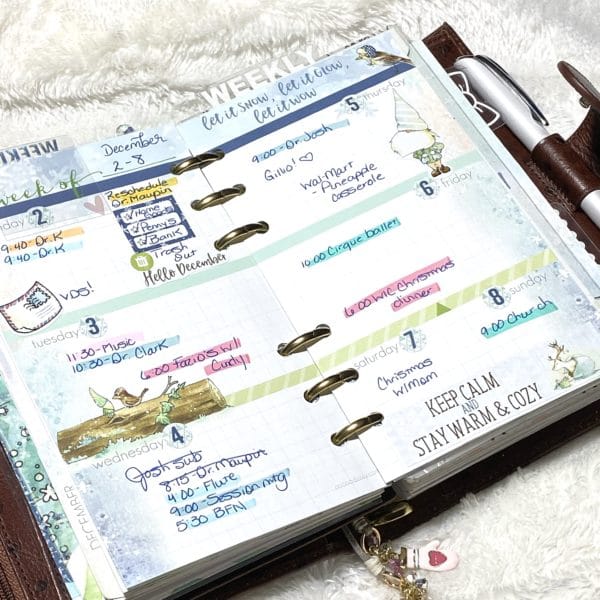 WEEKLY
WEEKLY
December
2-8
week of
let it snow, let it glow,
let it wow
2
Reschedule
Dr. Maupin
Home
Penny's
Bank
Trash
out
9:40-Dr.K
9:40-Dr.K
Hello December
VDS!
tuesday 3
11:30-Music
10:30-Dr. Clark
6:00 Fazio's w/
Cindy
wednesday 4
Josh sub
8:15-Dr. Maupin
4:00-Flute
9:00-Session mtg
5:30 BFN
DECEMBER
5 thursday
9:00-Dr. Josh
Gilio! ♡
Wal-Mart
Pineapple
casserole
6 friday
10:00 Cirque ballet
6:00 WIC Christmas
dinner
saturday 7
Christmas
w/mom
8
9:00 Church
KEEP CALM
AND
STAY WARM & COZY